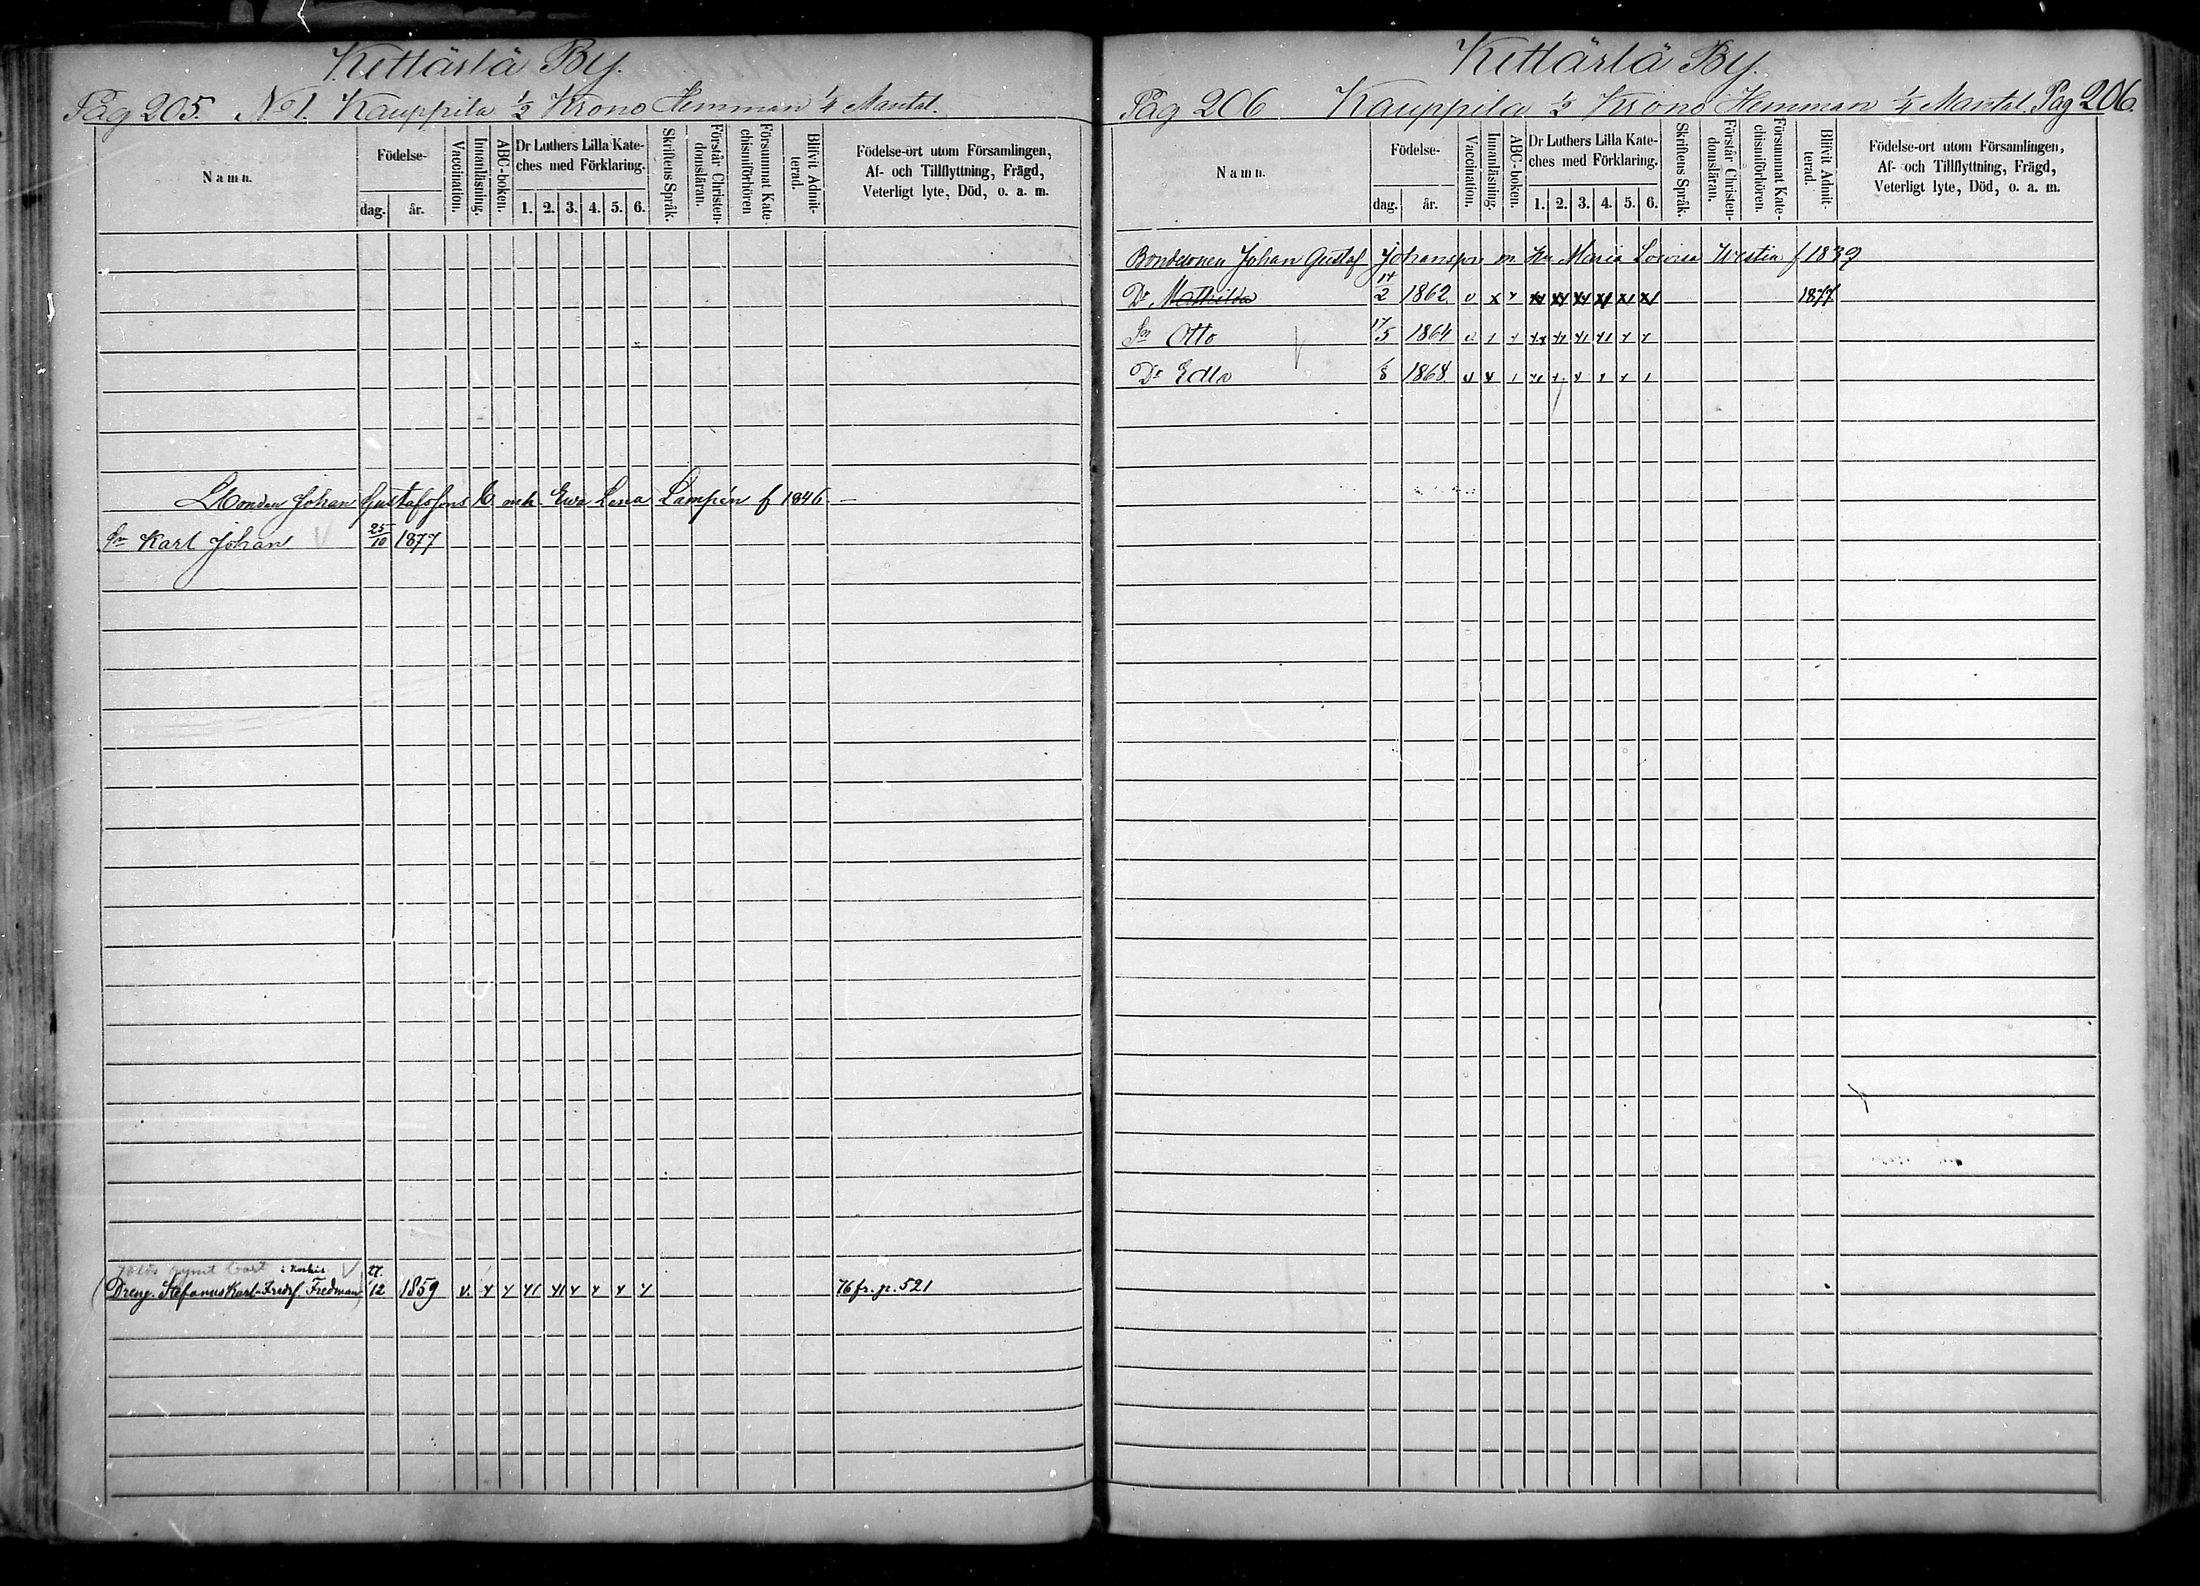 Kettärlä By.
Pag 205. No 1. Kauppila 1/2 Krono Hemman 1/4 Mantal.
Namn.
Födelse-
dag. år.
Vaccination.
Innanläsning.
ABC-boken.
Dr Luthers Lilla Kate-
ches med Förklaring.
1. 2. 3. 4. 5. 6.
Skriftens Språk.
Förstår Christen-
domsläran.
Försummat Kate-
chismiförhören
Blifvit Admit-
terad.
Födelse-ort utom Församlingen,
Af- och Tillflyttning, Frägd,
Veterligt lyte, Död, o. a. m.
Johan Gustafsons Ewa Lena Lampén f 1846
Sn Karl Johan 25/10 1877
Dreng. Stefanus Karl Fredrf. Fredman 27/12 1859 76 fr. p. 521
Kettärlä By.
Pag 206 Kauppila 1/2 Krono Hemman 1/4 Mantal. Pag 206.
Namn.
Födelse-
dag. år.
Vaccination.
Innanläsning.
ABC-boken.
Dr Luthers Lilla Kate-
ches med Förklaring.
1. 2. 3. 4. 5. 6.
Skriftens Språk.
Förstår Christen-
domsläran.
Försummat Kate-
chismiförhören.
Blifvit Admit-
terad.
Födelse-ort utom Församlingen,
Af- och Tillflyttning, Frägd,
Veterligt lyte, Död, o. a. m.
Bondesonen Johan Gustaf Johansson m. Hu Maria Lovisa Westin f 1839
Dr Mathilda 14/2 1862 1877
Sn Otto 17/5 1864
Dr Edla 1868